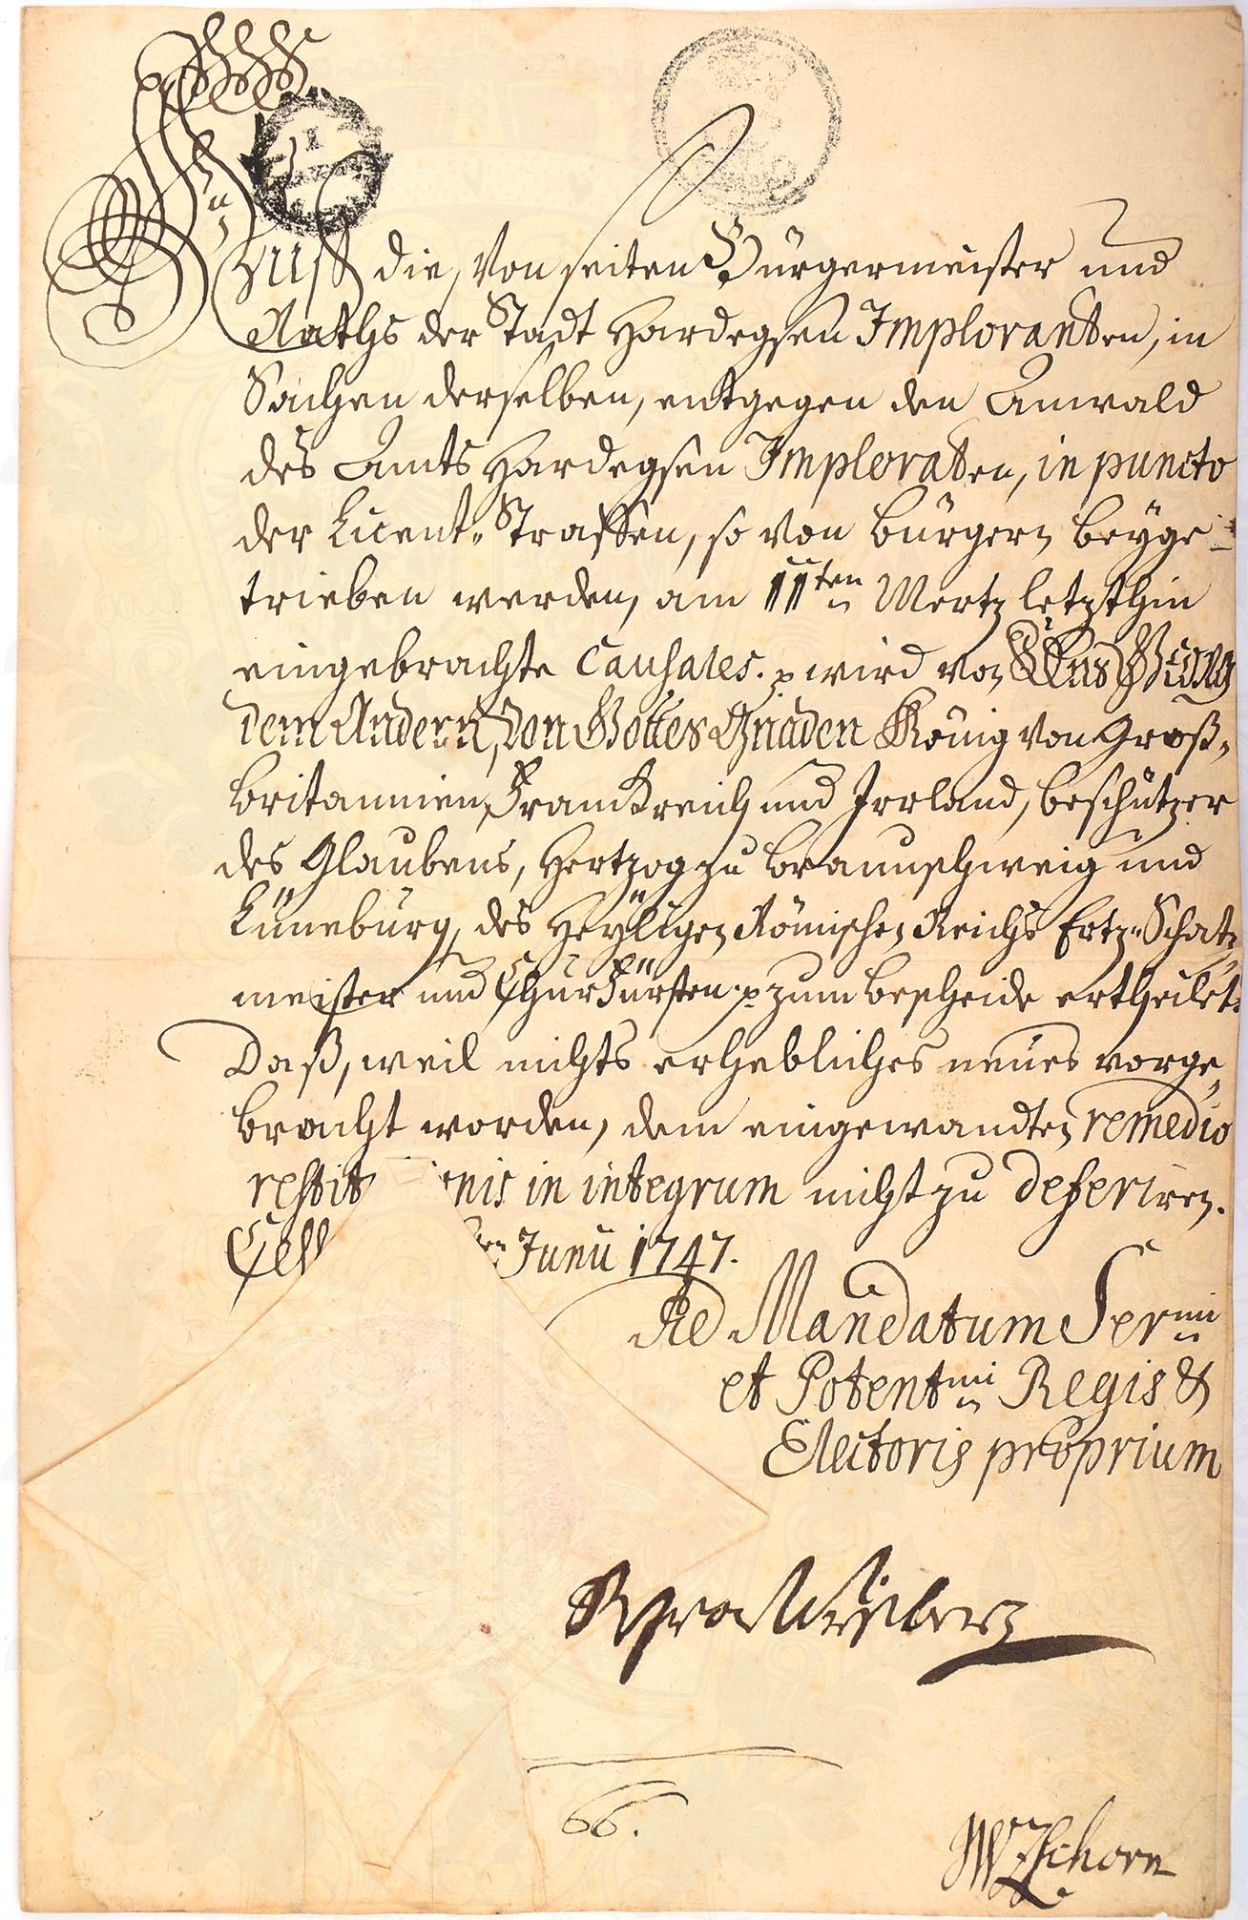 Auff die, von seiten Bürgermeister und
Raths der Stadt Hardegsen Imploranten, in
Sachen derselben, entgegen den Anwald
des Amts Hardegsen Imploraten, in puncto
der Licent-Straffen, so von Bürgern beyge-
trieben werden, am 11ten Mertz letzthin
eingebrachte Causales. p wird von Uns Georg
dem Andern, von Gottes Gnaden König von Groß-
britannien, Franckreich und Irrland, beschützer
des Glaubens, Hertzog zu Braunschweig und
Lüneburg, des Heyligen Römischen Reichs Ertz-Schatz
meister und ChurFürsten p zum bescheide ertheilet:
Daß, weil nichts erhebliches neues vorge-
bracht worden, dem eingewandten remedio
restit nis in integrum nicht zu deferiren.
Cell ten Junii 1747.
Ad Mandatum Sermi
et Potentmi Regis &
Electoris proprium
66.